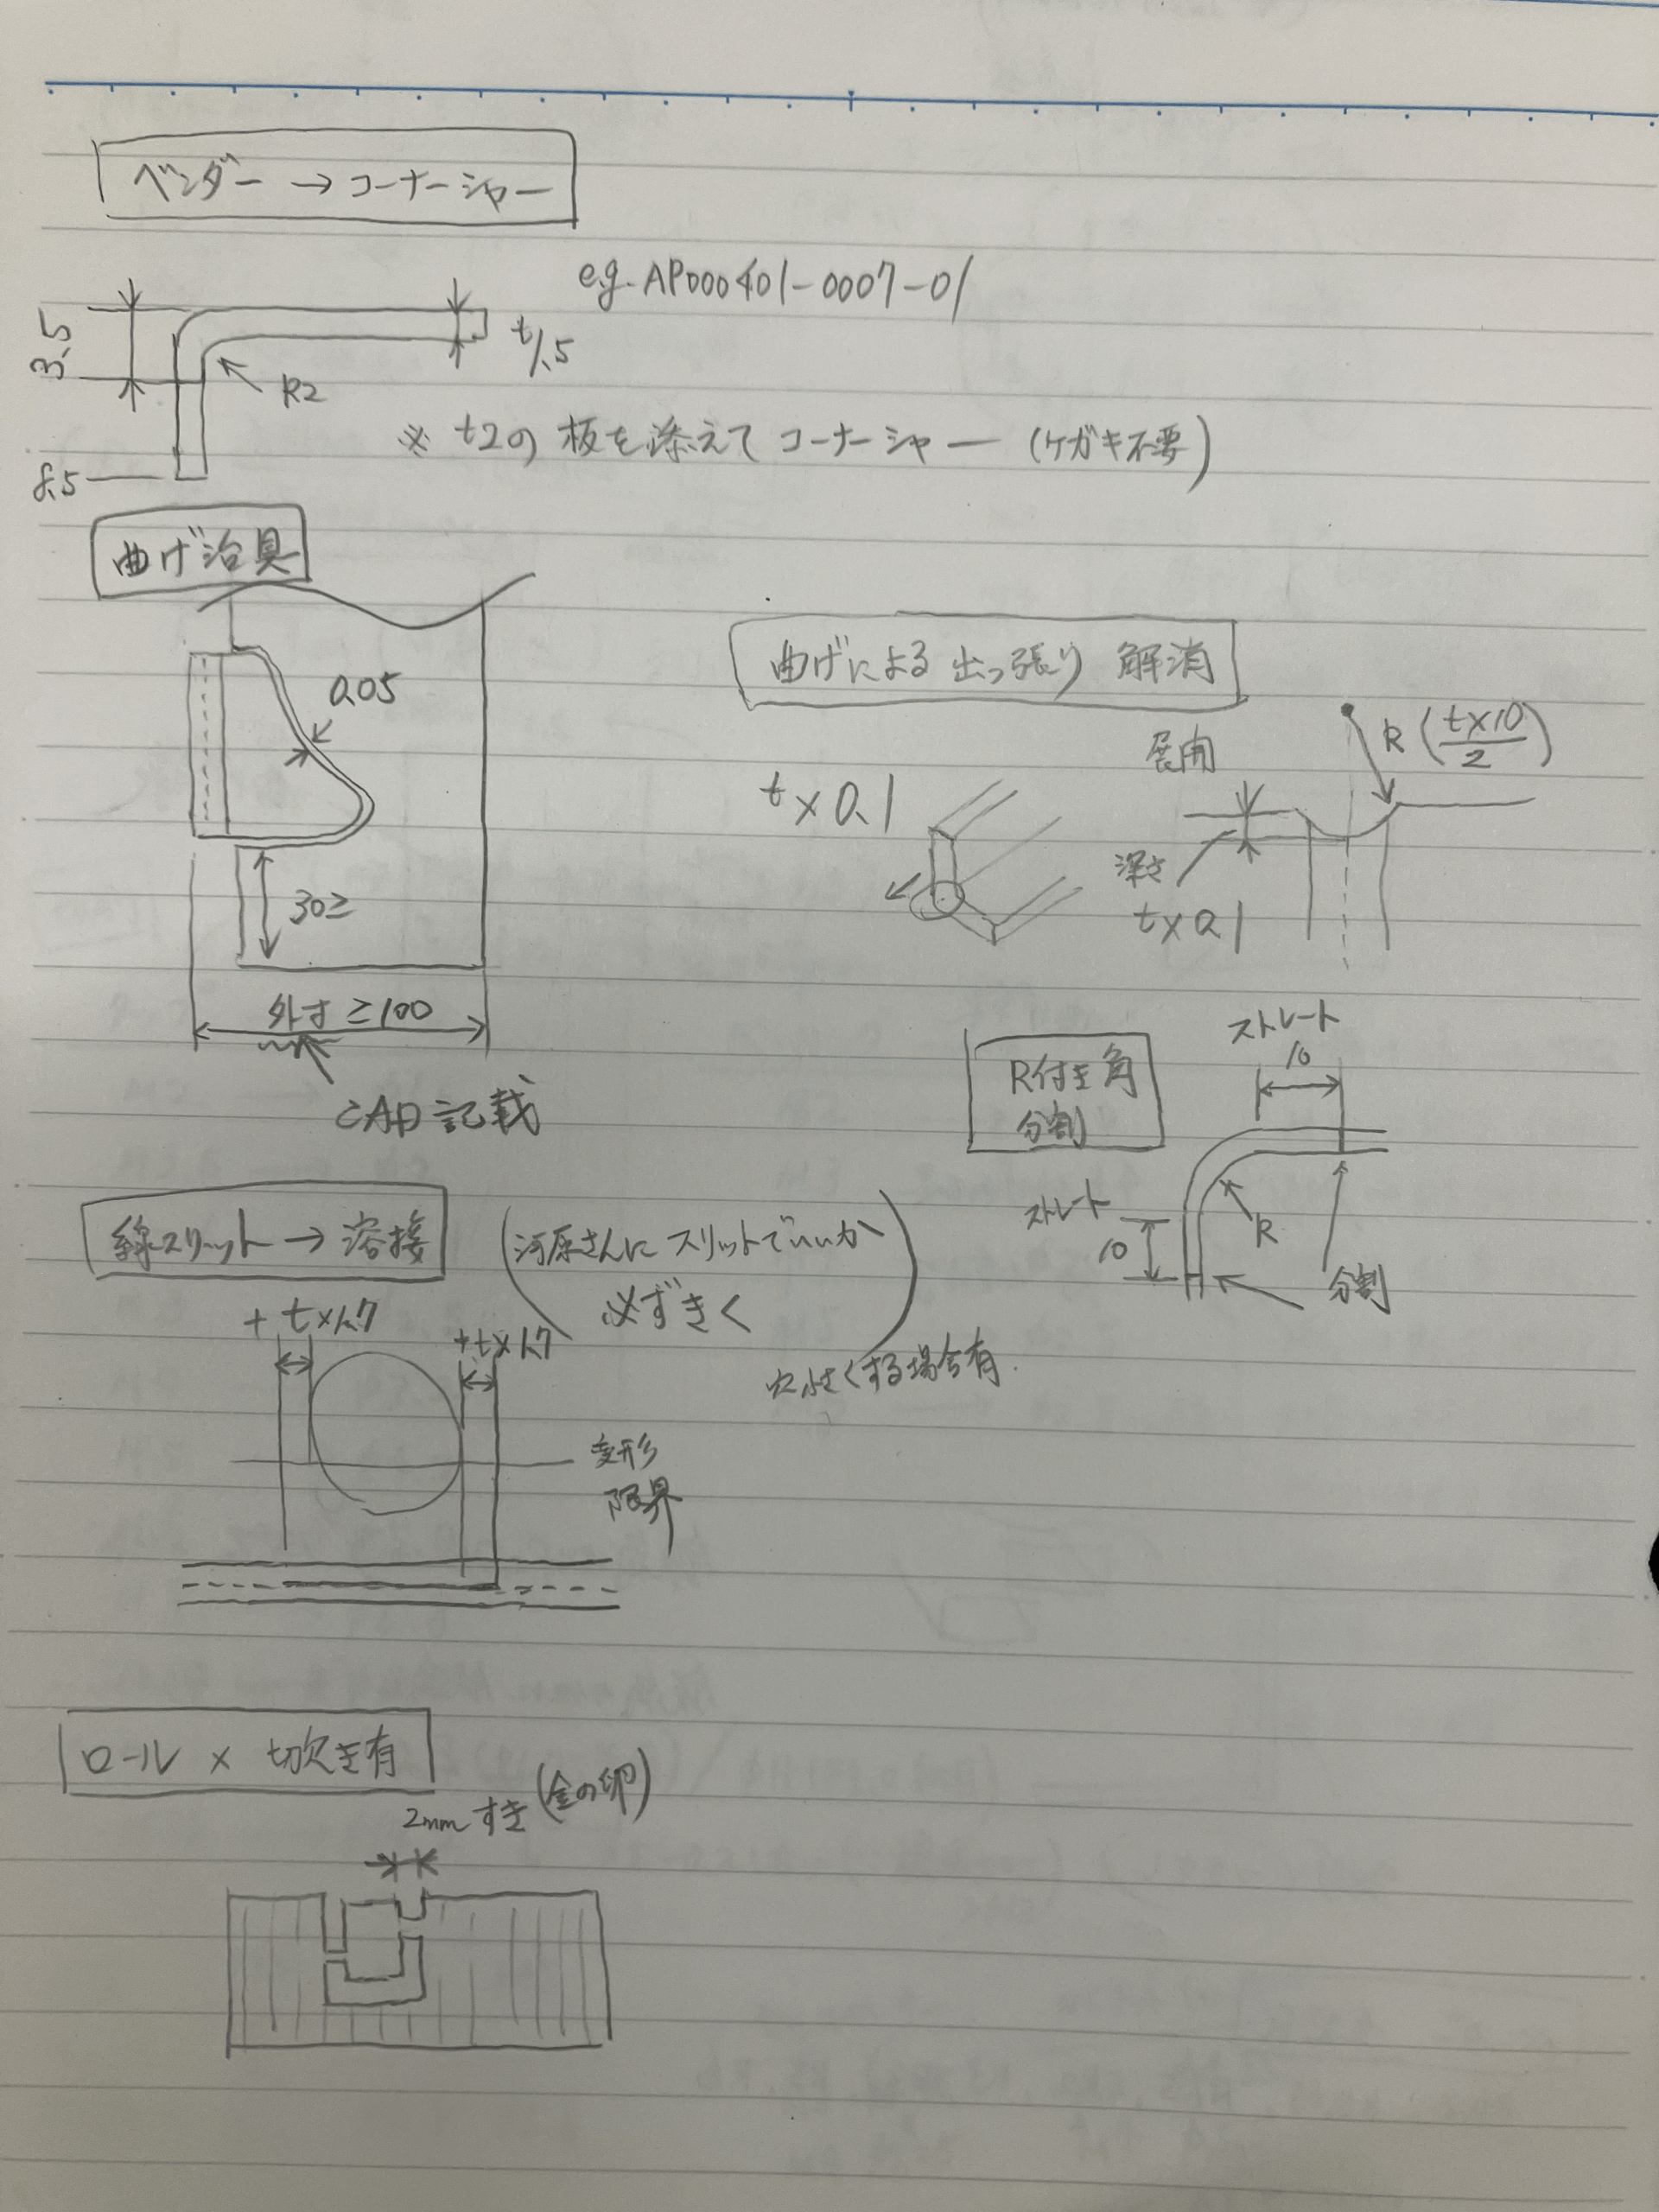 ベンダー → コーナーシャー
e.g. AP000401-0007-01
3.5
t1.5
R2
8.5
※ t2の板を添えてコーナーシャー (ケガキ不要)
曲げ治具
0.05
30≥
外寸 ≥100
CAD記載
曲げによる出っ張り 解消
展開
R (t×10/2)
t×0.1
深さ
t×0.1
R付き角
分割
ストレート
10
ストレート
10
R
分割
線スリット → 溶接
(河原さんにスリットでいいか
必ずきく)
穴小さくする場合有.
+t×1.7
+t×1.7
変形
限界
ロール × 切欠き有
2mmすき (金の卵)